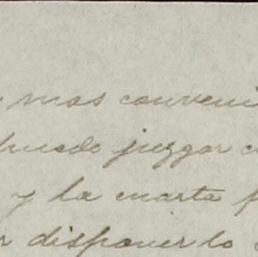 mas conveni
puedo juzgar c
y la cuarta
r disponerlo